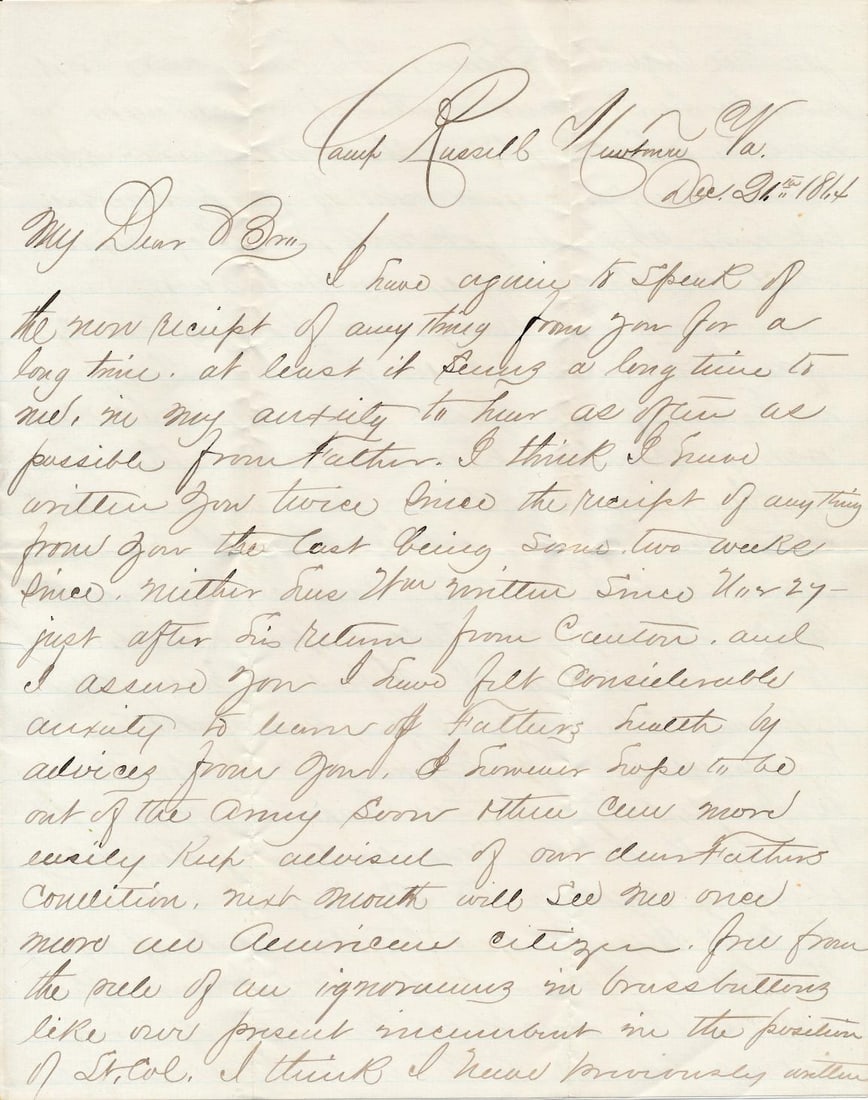 Camp Russell Newtown Va.
Dec. 21th 1864
My Dear Bro,
I have again to speak of
the non reciept of anything from you for a
long time. at least it seems a long time to
me, in my anxiety to hear as often as
possible from Father. I think I have
written you twice since the reciept of anything
from you the last being some two weeks
since. neither has Wm written since Nov 27-
just after his return from Canton. and
I assure you I have felt considerable
anxiety to learn of Fathers health by
advices from you. I however hope to be
out of the Army soon & then can more
easily keep advised of our dear Fathers
condition. next month will see me once
more an American citizen. free from
the rule of an ignoramus in brassbuttons
like our present incumbent in the position
of Lt. Col. I think I have previously written